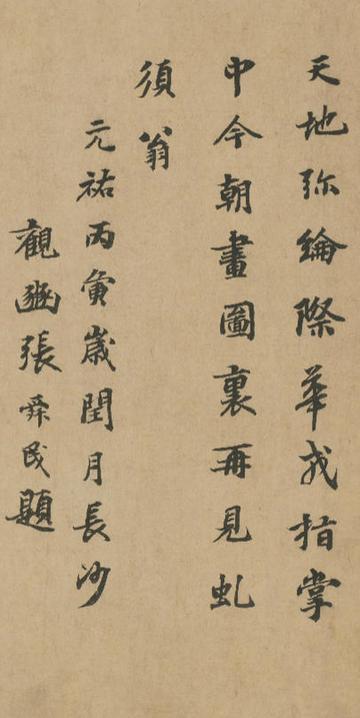 天地弥綸際華戎指掌
中今朝畫圖裏再見虬
須翁
元祐丙寅歲閏月長沙
觀豳張舜民題